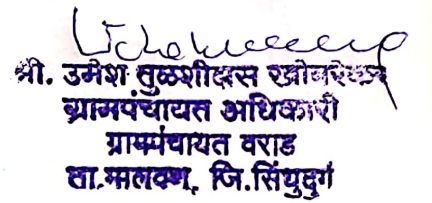 श्री. उमेश तुळशीदास खोबरेकर
ग्रामपंचायत अधिकारी
ग्रामपंचायत वराड
ता.मालवण, जि.सिंधुदुर्ग